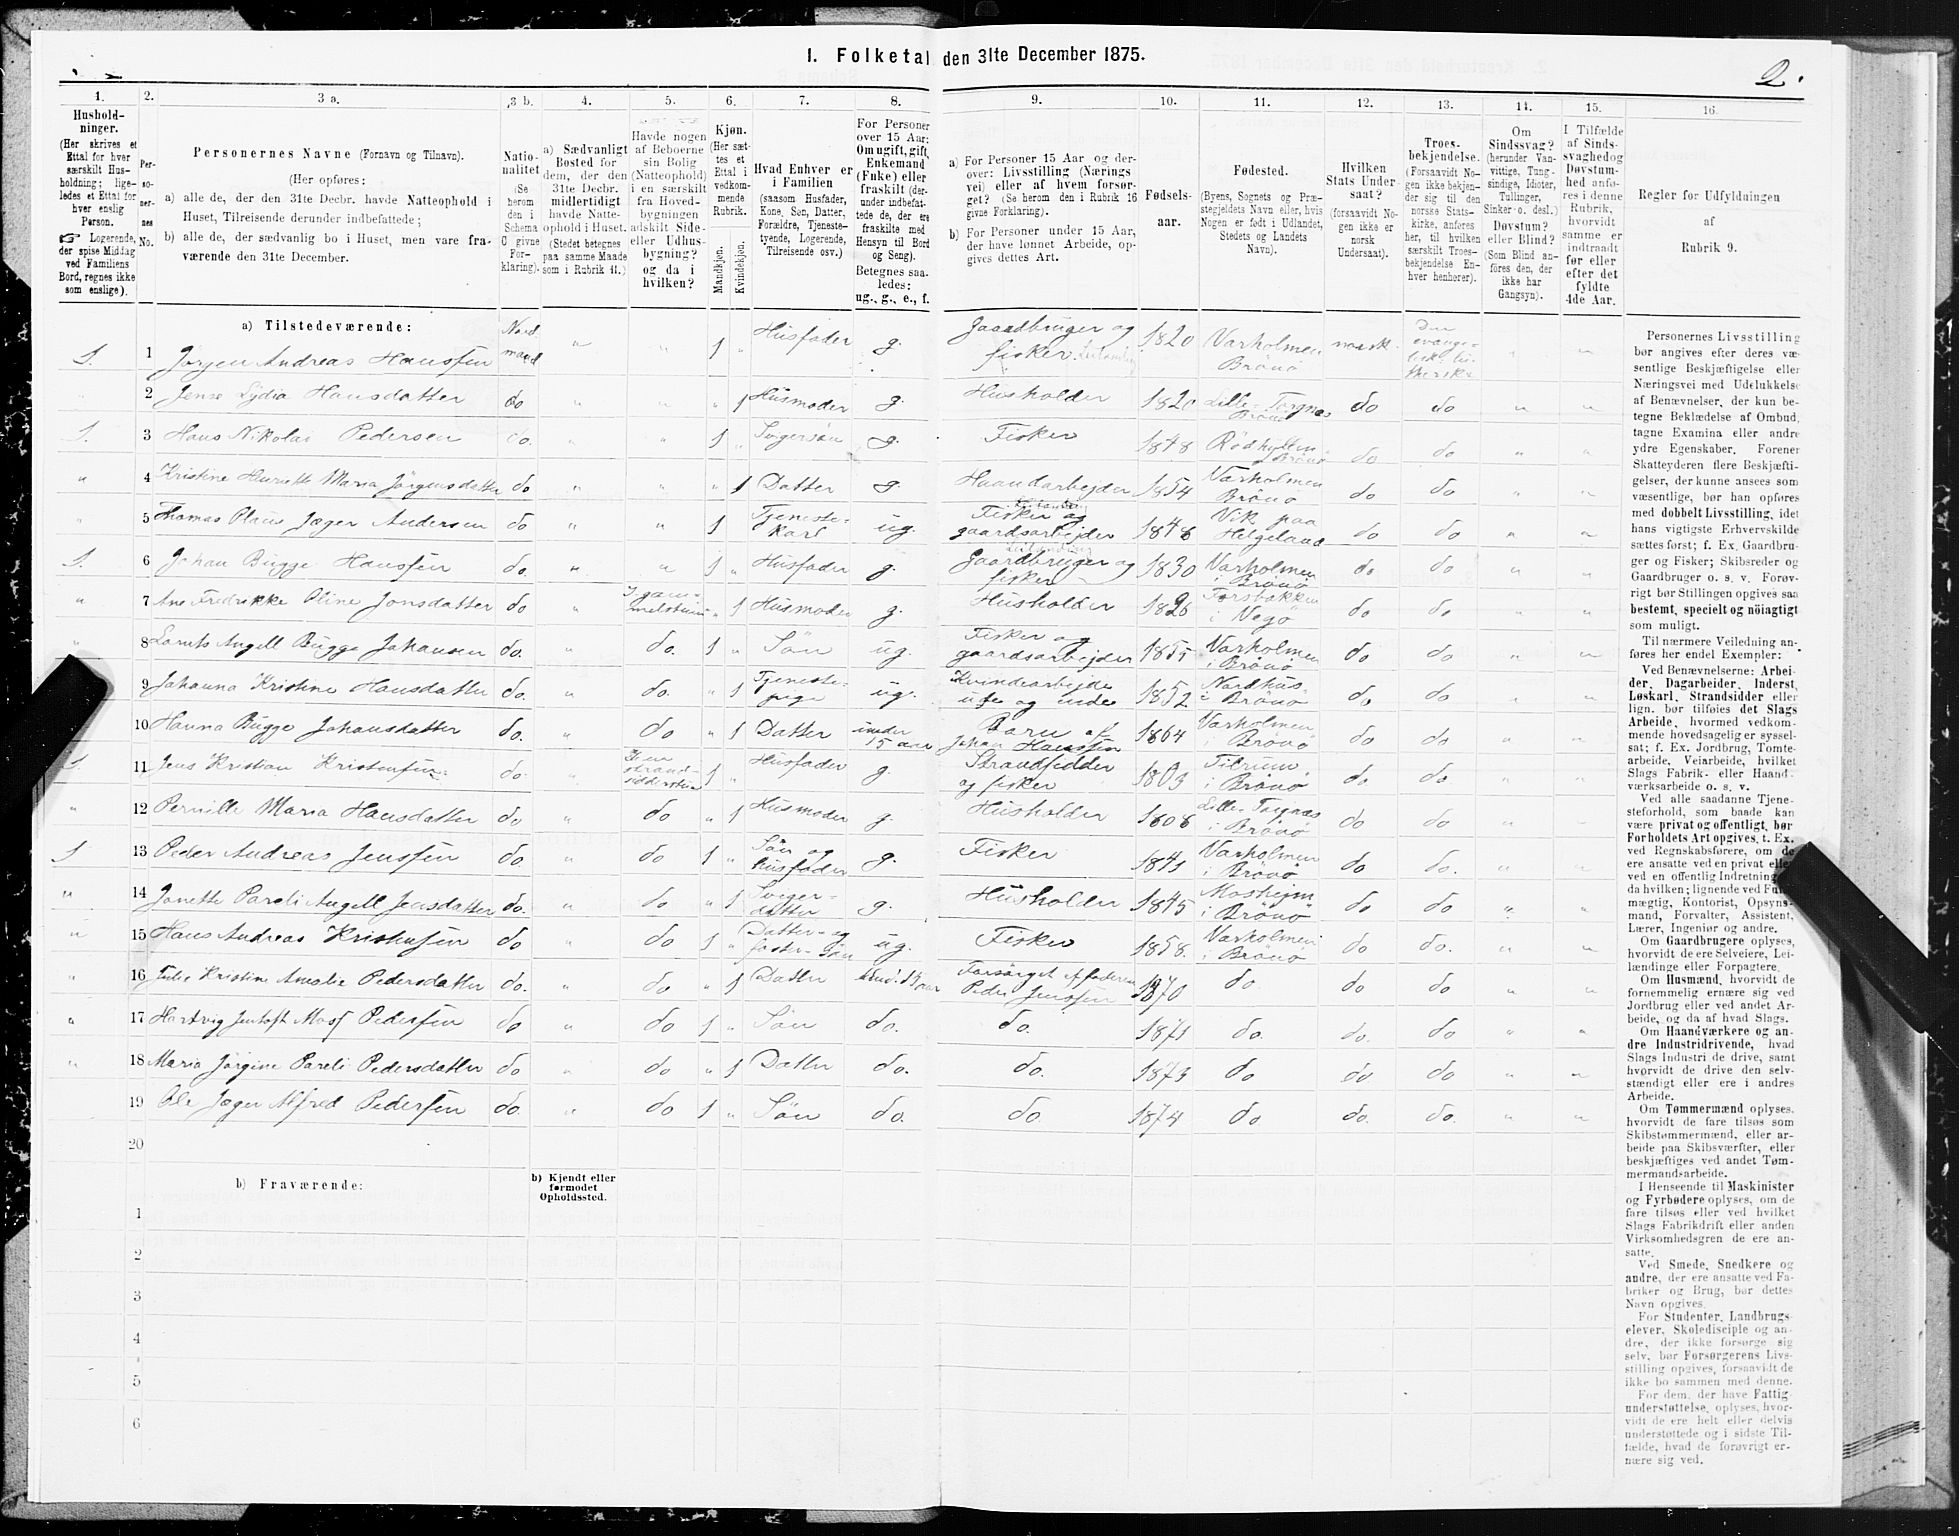 1. Folketal den 31te December 1875.
2.
1.
Hushold-
ninger.
(Her skrives et
Ettal for hver
særskilt Hus-
holdning; lige-
ledes et Ettal for
hver enslig
Person.
☞ Logerende,
der spise Middag
ved Familiens
Bord, regnes ikke
som enslige).
2.
Per-
so-
ner-
nes
No.
3 a.
Personernes Navne (Fornavn og Tilnavn).
(Her opføres:
a) alle de, der den 31te Decbr. havde Natteophold i
Huset, Tilreisende derunder indbefattede;
b) alle de, der sædvanlig bo i Huset, men vare fra-
værende den 31te December.
3 b.
Natio-
nalitet
(Se
herom
den i
Schema
C givne
For-
klaring).
4.
a) Sædvanligt
Bosted for
dem, der den
31te Decbr.
midlertidigt
havde Natte-
ophold i Huset.
(Stedet betegnes
paa samme Maade
som i Rubrik 11.)
5.
Havde nogen
af Beboerne
sin Bolig
(Natteophold)
i en særskilt
fra Hoved-
bygningen
adskilt Side-
eller Udhus-
bygning?
og da i
hvilken?
6.
Kjøn.
(Her sæt-
tes et
Ettal i
vedkom-
mende
Rubrik.
Mandkjøn.
Kvindekjøn.
7.
Hvad Enhver er
i Familien
(saasom Husfader,
Kone, Søn, Datter,
Forældre, Tjeneste-
tyende, Logerende,
Tilreisende osv.)
8.
For Personer
over 15 Aar:
Om ugift, gift,
Enkemand
(Enke) eller
fraskilt (der-
under indbefat-
tede de, der ere
fraskilte med
Hensyn til Bord
og Seng).
Betegnes saa-
ledes:
ug., g., e., f.
9.
a) For Personer 15 Aar og der-
over: Livsstilling (Nærings-
vei) eller af hvem forsør-
get? (Se herom den i Rubrik 16
givne Forklaring).
b) For Personer under 15 Aar,
der have lønnet Arbeide, op-
gives dettes Art.
10.
Fødsels-
aar.
11.
Fødested.
(Byens, Sognets og Præ-
stegjeldets Navn eller, hvis
Nogen er født i Udlandet,
Stedets og Landets
Navn).
12.
Hvilken
Stats Under-
saat?
(forsaavidt No-
gen ikke er
norsk
Undersaat).
13.
Troes-
bekjendelse.
(Forsaavidt No-
gen ikke bekjen-
der sig til den
norske Stats-
kirke, anføres
her, til hvilken
særskilt Troes-
bekjendelse En-
hver henhører).
14.
Om
Sindssvag?
(herunder Van-
vittige, Tung-
sindige, Idioter,
Tullinger,
Sinker o. desl.)
Døvstum?
eller Blind?
(Som Blind an-
føres den, der
ikke har
Gangsyn).
15.
I Tilfælde
af Sinds-
svaghed og
Døvstum-
hed anfø-
res i denne
Rubrik,
hvorvidt
samme er
indtraadt
før eller
efter det
fyldte
4de Aar.
16.
Regler for Udfyldningen
af
Rubrik 9.
a) Tilstedeværende:
1. 1 Jørgen Andreas Hanssen Nordmand " " 1 " Husfader g. Gaardbruger og fisker 1820 Varholmen Brönö norsk. Den evange- " "
" 2 Jense Lydia Hansdatter do " " " 1 Husmoder g. Husholder 1820 Lille-Torgnæs Brönö do do " "
1. 3 Hans Nikolai Pedersen do. " " 1 " Svigersön g. Fisker 1848 Rödholmen Brönö do do " "
" 4 Kristine Henriette Maria Jörgensdatter do " " " 1 Datter g. Haandarbejder 1854 Varholmen Brönö do do " "
" 5 Thomas Olaus Jæger Andersen do " " 1 Tjeneste-karl ug. Fisker og gaardsarbejder 1848 Vik paa Helgeland do do " "
1. 6 Johan Bugge Hanssen do. " " 1 " Husfader g. Gaardbruger og fisker 1830 Varholmen i Brönö do do " "
" 7 Ane Fredrikke Oline Jonsdatter do " I gam- " 1 Husmoder g. Husholder 1826 Forsbakken i Vegö do do " "
" 8 Laurits Angell Bugge Johansen do. " do. 1 " Sön ug. Fisker og gaardsarbejder 1855 Varholmen i Brönö do do " "
" 9 Johanna Kristine Hansdatter do. " do. " 1 Tjeneste-pige ug. Kvindearbejde ude og inde 1852 Nordhus i Brönö do do " "
" 10 Hanna Bugge Johansdatter do. " do " 1 Datter under 15 aar Barn af Johan Hanssen 1864 Varholmen i Brönö do do " "
1. 11 Jens Kristian Kristensen do. " I en strand- 1 " Husfader g. Strandsidder og fisker 1803 Tilrum i Brönö do do " "
" 12 Pernille Maria Hansdatter do " do " 1 Husmoder g. Husholder 1808 Lille-Torgnæs i Brönö do do " "
1 13 Peder Andreas Jenssen do. " do 1 " Sön og husfader g. Fisker 1841 Varholmen i Brönö do do. " "
" 14 Janette Pareli Angell Jensdatter do. " do " 1 Sviger-datter g. Husholder 1845 Mosheim i Brönö do do " "
" 15 Hans Andreas Kristensen do " do 1 " Datter- og foster-Sön ug. Fisker 1858. Varholmen i Brönö do do. " "
" 16 Julie Kristine Amalie Pedersdatter do. " do " 1 Datter und. 15 aar Forsörget af faderen Peder Jenssen 1870 do. do do " "
" 17 Hartvig Jentoft Mosf Pedersen do " do 1 " Sön do. do. 1871 do. do. do " "
" 18 Maria Jörgine Pareli Pedersdatter do " do " 1 Datter do. do. 1873 do do do " "
19 Ole Jæger Alfred Pedersen do. " do 1 " Sön do. do. 1874 do do. do. " "
20
b) Fraværende:
b) Kjendt eller
formodet
Opholdssted.
1
2
3
4
5
6
Personernes Livsstilling
bør angives efter deres væ-
sentlige Beskjæftigelse eller
Næringsvei med Udelukkelse
af Benævnelser, der kun be-
tegne Beklædelse af Ombud,
tagne Examina eller andre
ydre Egenskaber. Forener
Skatteyderen flere Beskjæfti-
gelser, der kunne ansees som
væsentlige, bør han opføres
med dobbelt Livsstilling, idet
hans vigtigste Erhvervskilde
sættes først; f. Ex. Gaardbru-
ger og Fisker; Skibsreder og
Gaardbruger o. s. v. Forøv-
rigt bør Stillingen opgives saa
bestemt, specielt og nöiagtigt
som muligt.
Til nærmere Veiledning an-
føres her endel Exempler:
Ved Benævnelserne: Arbei-
der, Dagarbeider, Inderst,
Løskarl, Strandsidder eller
lign. bør tilføies det Slags
Arbeide, hvormed vedkom-
mende hovedsagelig er syssel-
sat; f. Ex. Jordbrug, Tomte-
arbeide, Veiarbeide, hvilket
Slags Fabrik- eller Haand-
værksarbeide o. s. v.
Ved alle saadanne Tjene-
steforhold, som baade kan
være privat og offentligt, bør
Forholdets Art opgives, t. Ex.
ved Regnskabsførere, om de
ere ansatte ved en privat eller
ved en offentlig Indretning
da hvilken; lignende ved Fuld-
mægtig, Kontorist, Opsyns-
mand, Forvalter, Assistent,
Lærer, Ingeniør og andre.
Om Gaardbrugere oplyses,
hvorvidt de ere Selveiere, Lei-
lændinge eller Forpagtere.
Om Husmænd, hvorvidt de
fornemmelig ernære sig ved
Jordbrug eller ved andet Ar-
beide, og da af hvad Slags.
Om Haandværkere og an-
dre Industridrivende, hvad
Slags Industri de drive, samt
hvorvidt de drive den selv-
stændigt eller ere i andres
Arbeide.
Om Tømmermænd oplyses,
hvorvidt de fare tilsøs som
Skibstømmermænd, eller ar-
beide paa Skibsværfter, eller
beskjæftiges ved andet Tøm-
mermandsarbeide.
I Henseende til Maskinister
og Fyrbødere oplyses, om de
fare tilsøs eller ved hvilket
Slags Fabrikdrift eller anden
Virksomhedsgren de ere an-
satte.
Ved Smede, Snedkere og
andre, der ere ansatte ved Fa-
briker og Brug, bør dettes
Navn opgives.
For Studenter, Landbrugs-
elever, Skoledisciple og an-
dre, der ikke forsørge sig
selv, bør Forsørgerens Livs-
stilling opgives, forsaavidt de
ikke bo sammen med denne.
For dem, der have Fattig-
understøttelse, oplyses, hvor-
vidt de ere helt eller delvis
understøttede og i sidste Til-
fælde, hvad de forøvrigt er-
nære sig ved.